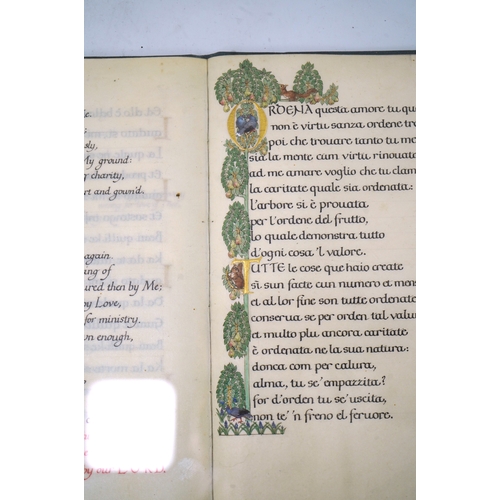 e.
sly,
My ground:
charity,
rt and gown'd.
again
ng of
ured then by Me;
by Love,
for ministry.
wn enough,
by our LORD.
ORDENA questa amore tu qu
non è virtu sanza ordene tro
poi che trouare tanto tu m
sia la mente cum virtu rinouat
ad me amare voglio che tu clam
la caritate quale sia ordenata:
l'arbore si è prouata
per l'ordene del frutto,
lo quale demonstra tutto
d'ogni cosa 'l valore.
TUTTE le cose que haio create
sì sun facte cun numero et mens
et al lor fine son tutte ordenate
conserua se per orden tal valu
et multo plu ancora caritate
è ordenata ne la sua natura:
donca com per calura,
alma, tu se' empazzita?
for d'orden tu se' uscita,
non te 'n freno el feruore.